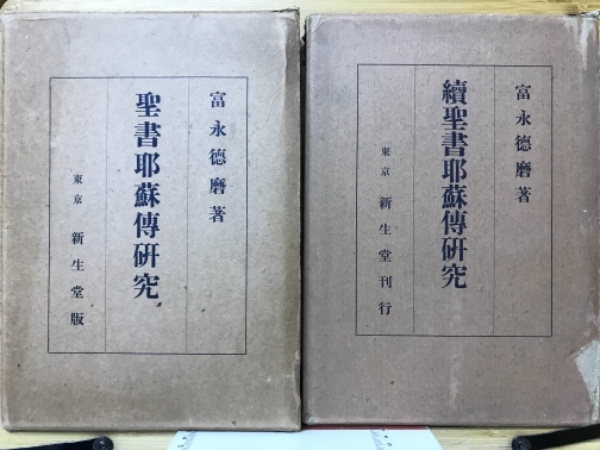 富永德磨著
聖書耶蘇傳硏究
東京 新生堂版
富永德磨著
續聖書耶蘇傳硏究
東京 新生堂刊行